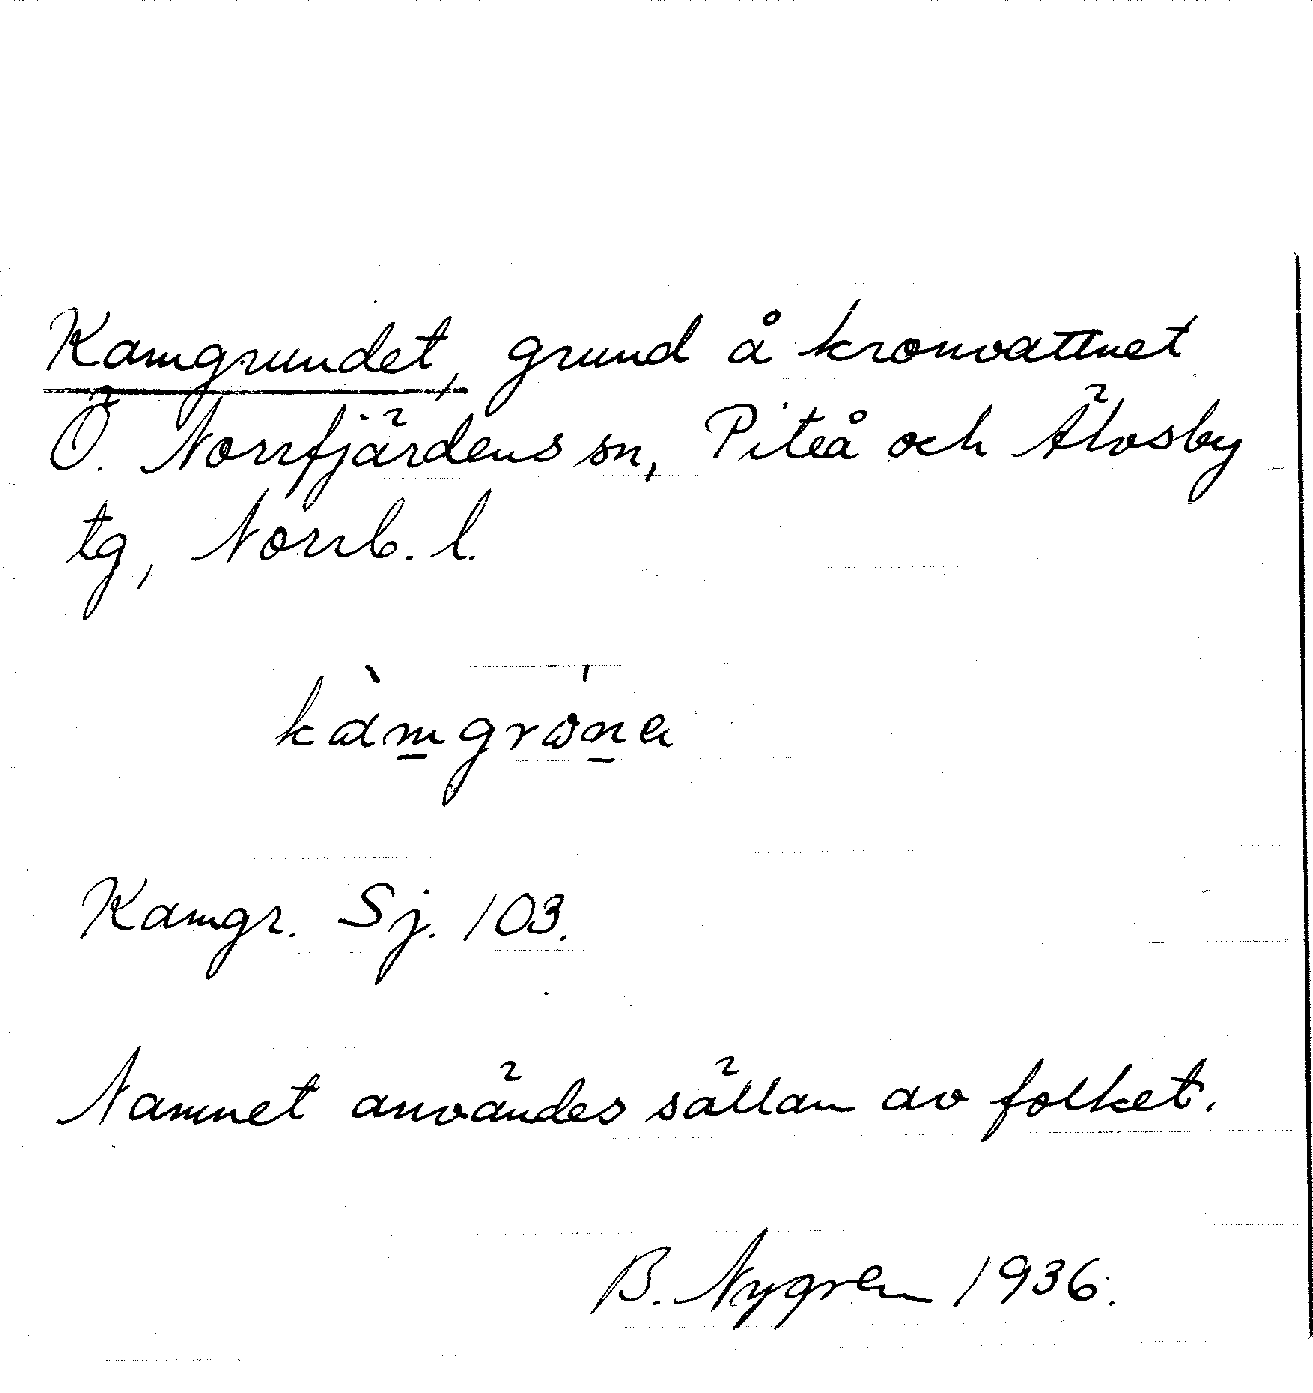 Kamgrundet, grund å kronvattnet
Ö. Norrfjärdens sn, Piteå och Älvsby
tg, Norrb. l.
kàmgrøna
Kamgr. Sj. 103.
Namnet användes sällan av folket.
B. Nygren 1936.